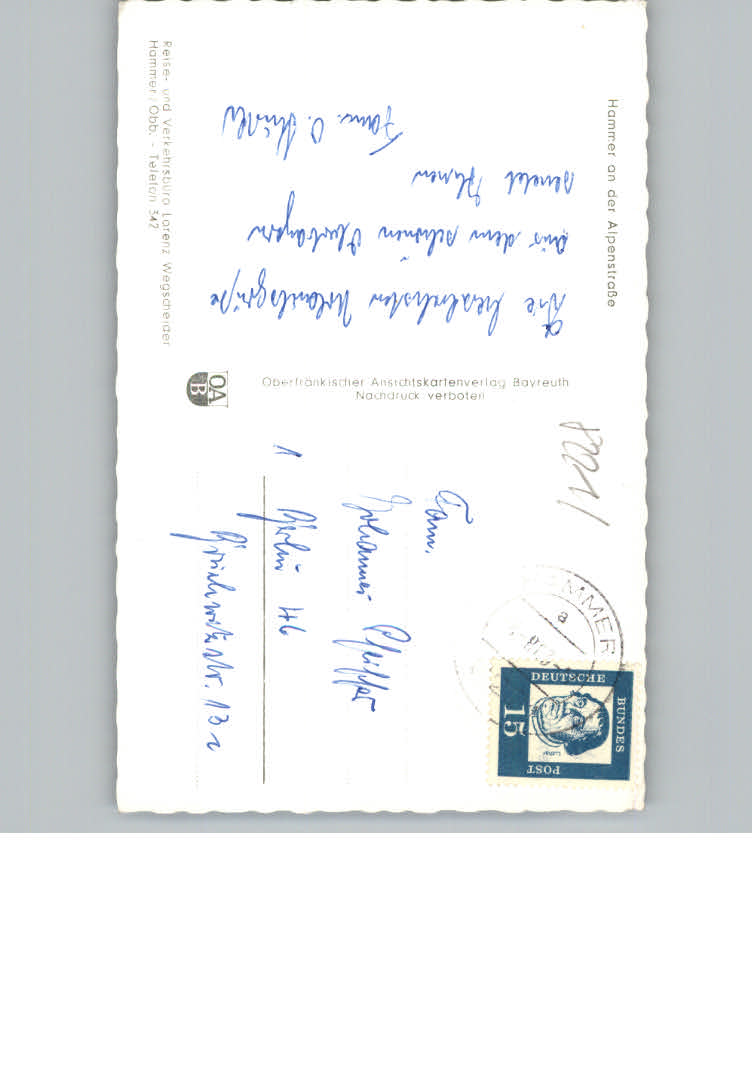 Hammer an der Alpenstraße
Die herzlichsten Urlaubsgrüße
aus dem schönen Oberbayern
sendet Ihnen
Fam. O.
Reise- und Verkehrsbüro Lorenz Wegscheider
Hammer/Obb. - Telefon 342
Oberfränkischer Ansichtskartenverlag Bayreuth
Nachdruck verboten
OA
B
82211
Fam.
Johannes Pfeiffer
1 Berlin 46
13
HAMMER
a
DEUTSCHE
BUNDES
POST
15
Luther